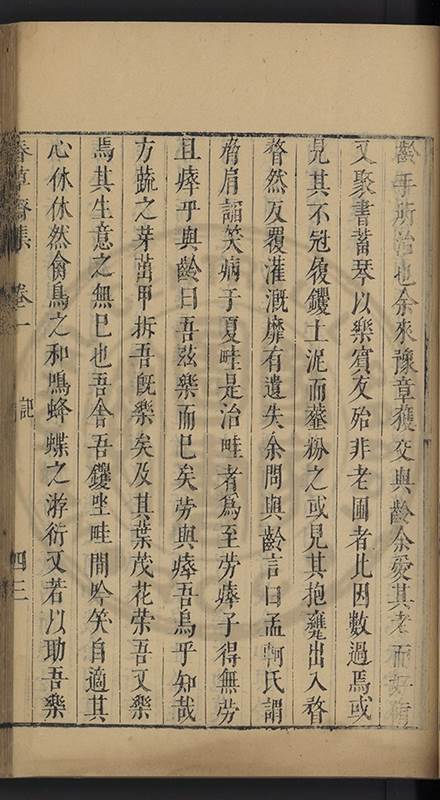 齡手所治也余來豫章獲交與齡余愛其老而好脩
又聚書蓄琴以樂賓友殆非老圃者比因數過焉或
見其不冠履钁土泥而蓻粉之或見其抱甕出入
然反覆灌溉靡有遺失余問與齡言曰孟軻氏謂
脅肩諂笑病于夏畦是治畦者為至勞瘁子得無勞
且瘁乎與齡曰吾玆樂而巳矣勞與瘁吾烏乎知哉
方蔬之芽茁甲拆吾旣樂矣及其葉茂花榮吾又樂
焉其生意之無巳也吾舍吾钁坐畦間吟笑自適其
心休休然禽鳥之和鳴蜂蝶之游衍又若以助吾樂
春草齋集 卷一 記 四三